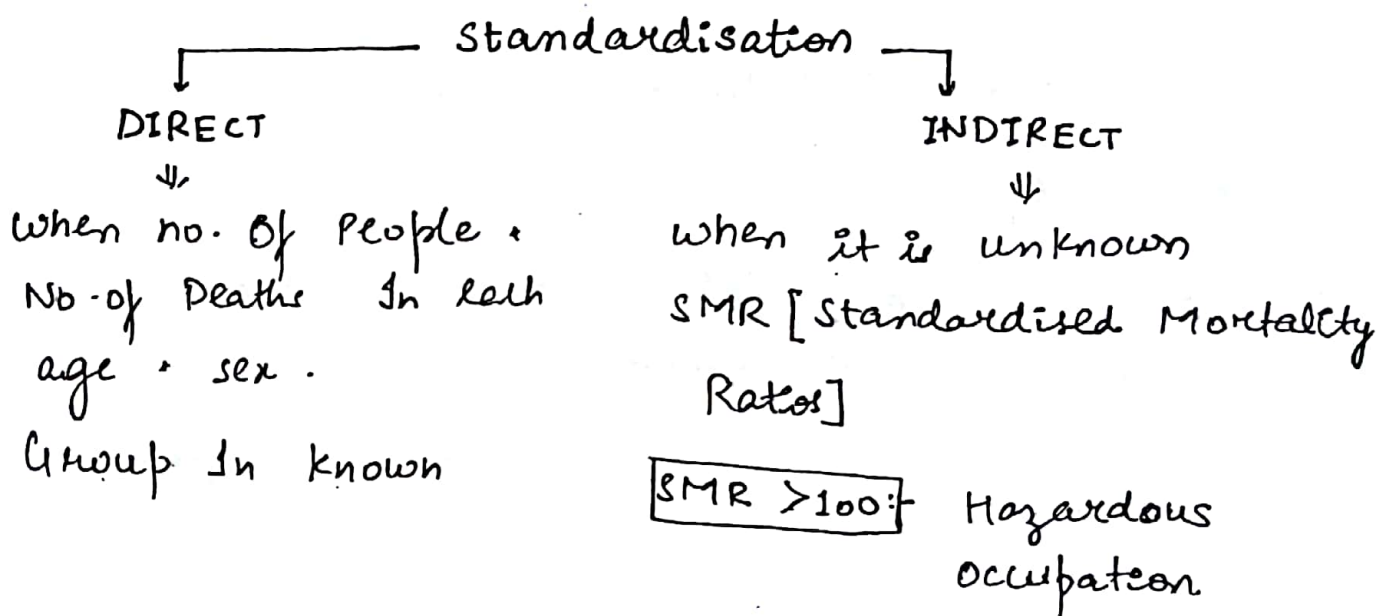 Standardisation
DIRECT
when no. Of People *
No. of Deaths In each
age * sex.
Group In known
INDIRECT
when it is unknown
SMR [Standardised Mortality
Ratios]
SMR >100:- Hazardous
occupation